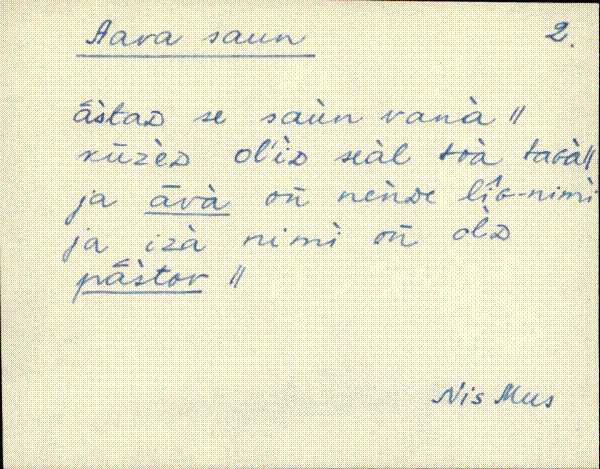 Aava saun 2.
ǟstaᴅ se saùn vanà //
kūzèᴅ ol'iᴅ seàl toà tagà//
ja āvà oñ nènᴅe lîg-nimì
ja izà nimì oñ òlᴅ
pǟ̀stor //
Nis Mus